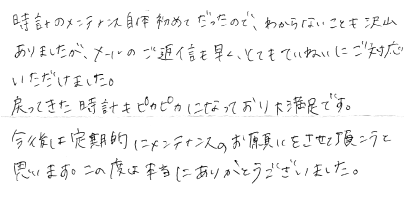 時計のメンテナンス自体初めてだったので、わからないことも沢山
ありましたが、メールのご返信も早く、とてもていねいにご対応
いただけました。
戻ってきた時計もピカピカになっており大満足です。
今後は定期的にメンテナンスのお願いをさせて頂こうと
思います。この度は本当にありがとうございました。